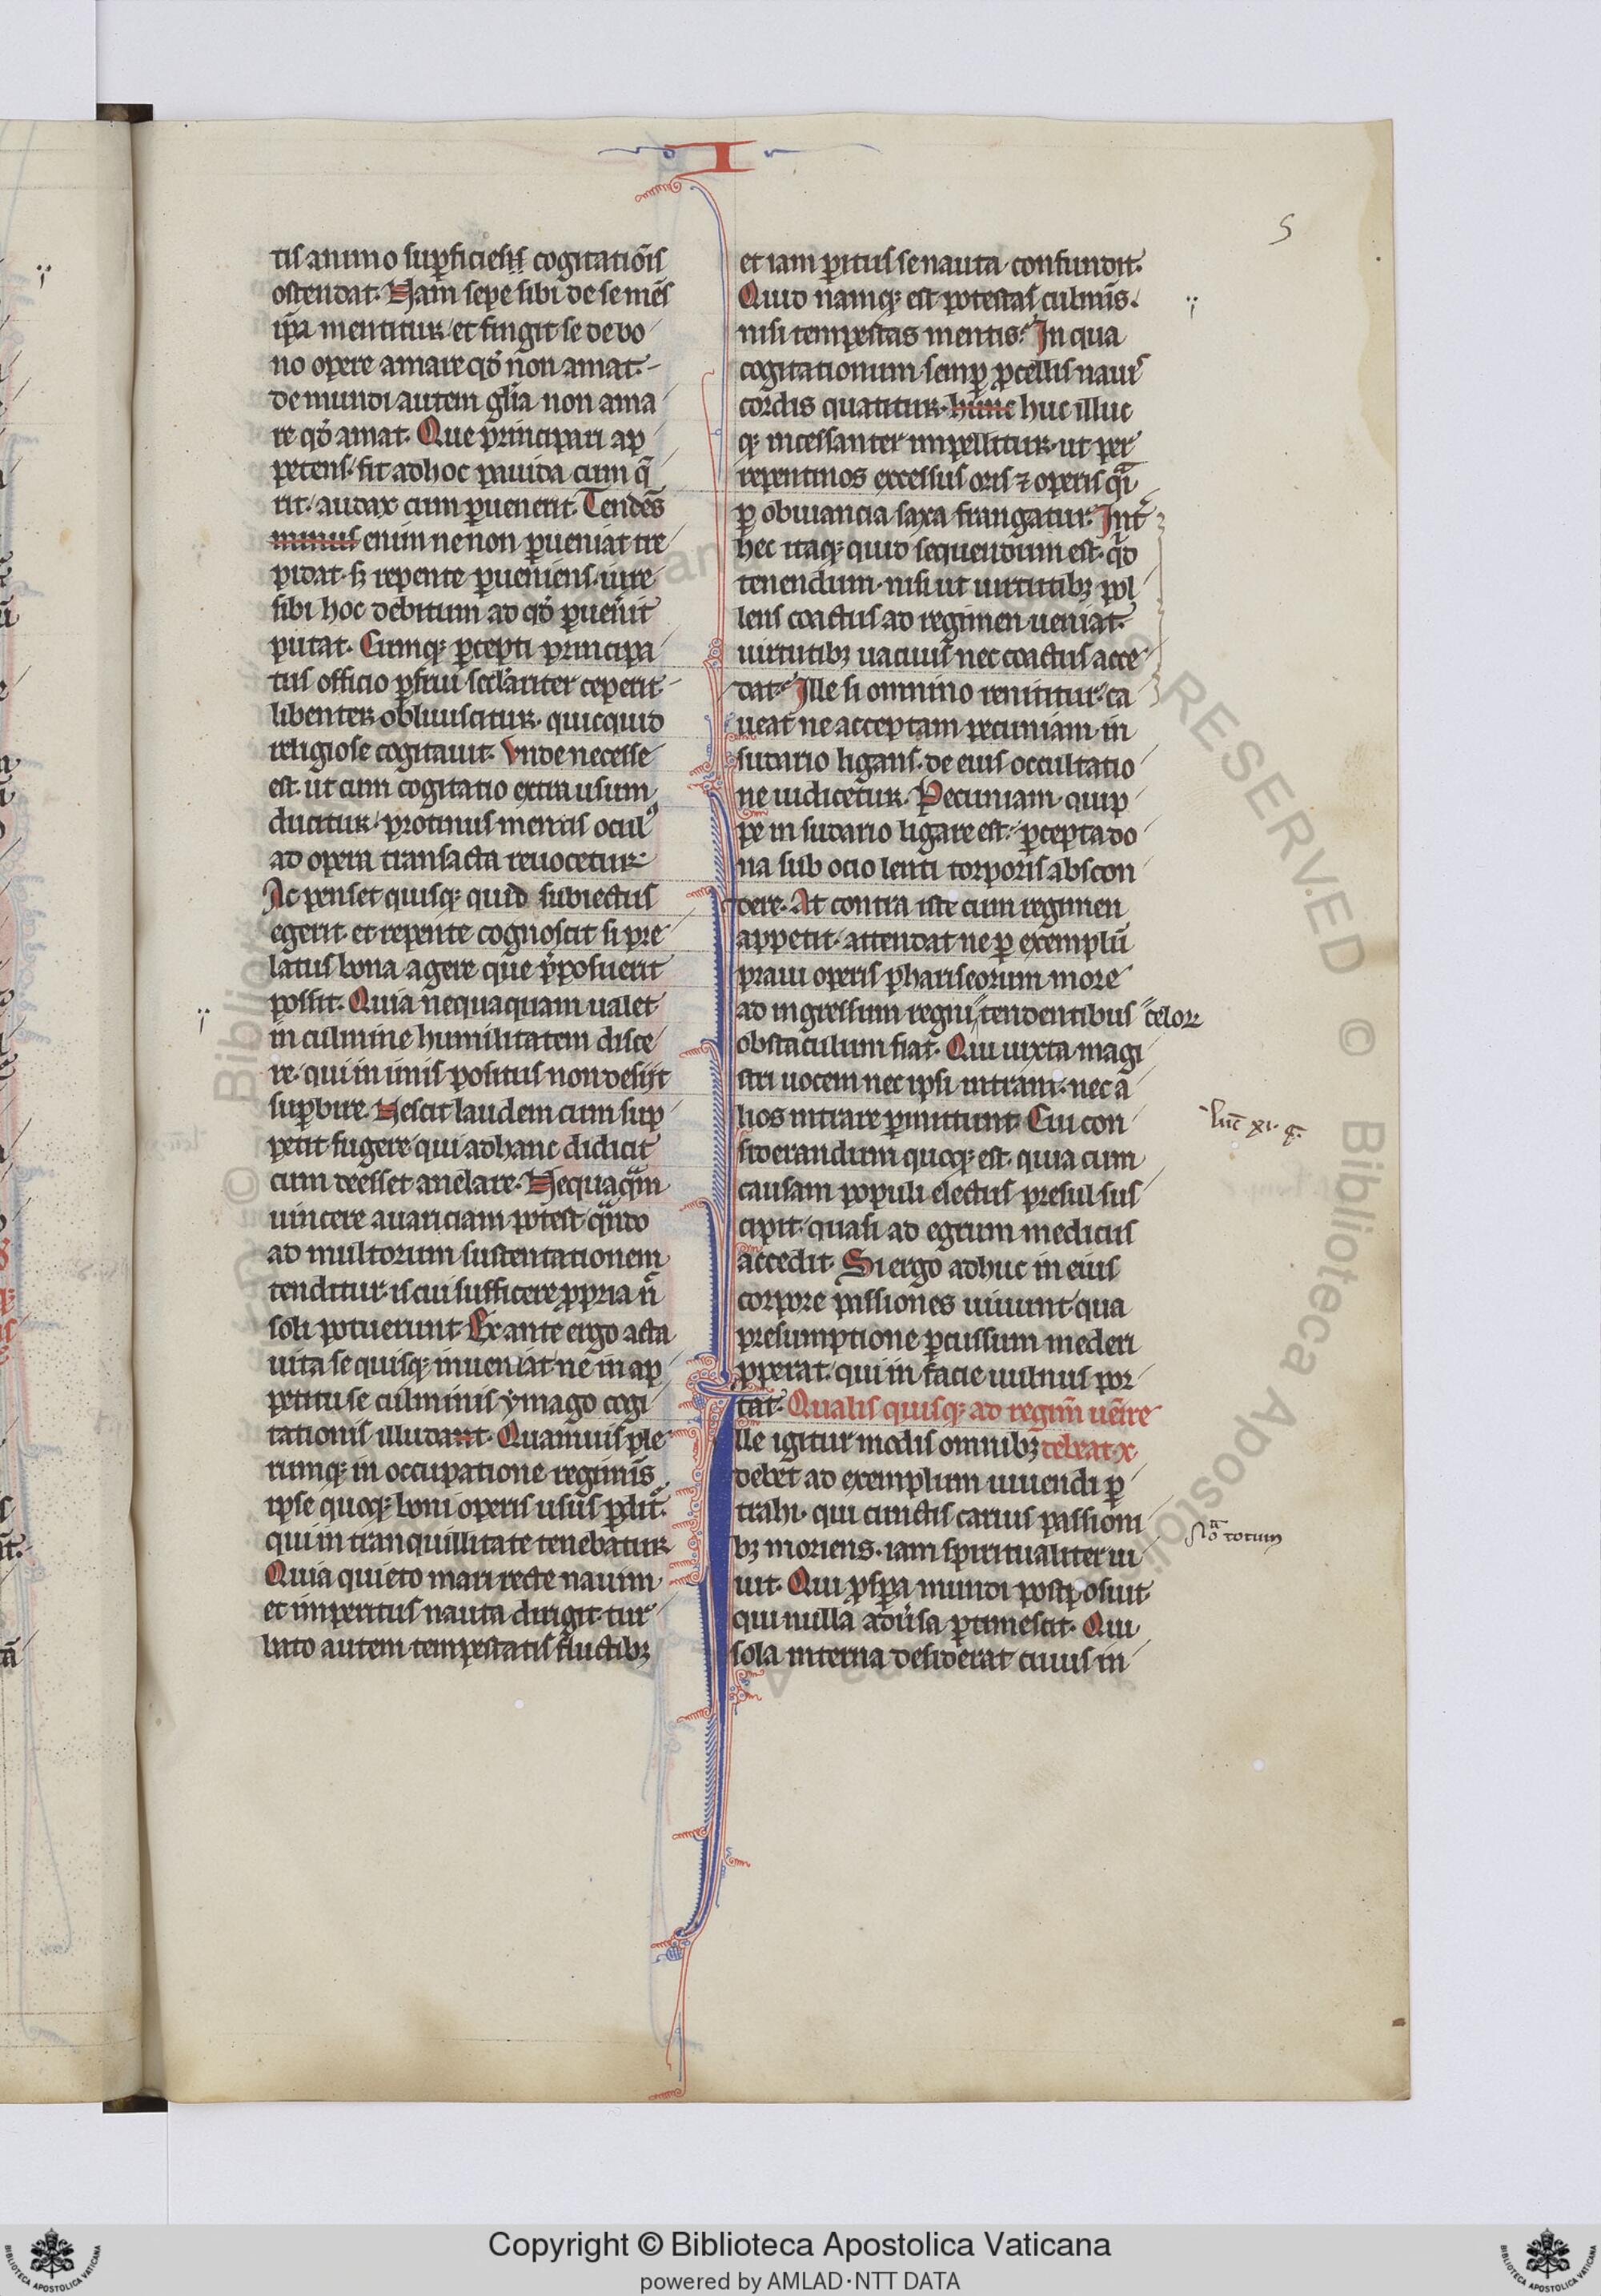 I
5
tis animo supficiesii cogitatiōis
ostendat. Nam sepe sibi de se mēs
ip̄a mentitur et fingit se de bo
no opere amare qd̓ non amat.
de mundi autem gl̄ia non ama
re qd̓ amat. Que principari ap
petens. fit ad hoc pauida cum q̄
rit. audax cum ꝑuenerit. Tendēs
minus enim ne non ꝑueniat tre
pidat. s; repente ꝑueniens. iure
sibi hoc debitum ad qd̓ ꝑuen̓it
putat. Cumq; ꝑcepti principa
tus officio ꝑfrui sclariter ceperit.
libenter obliuiscitur. quicquid
religiose cogitauit. Vnde necesse
est. ut cum cogitatio extra usum
ducitur. protinus mentis oculꝰ
ad opera transacta reuocetur.
Ac penset quisq; quid subiectus
egerit. et repente cognoscit si pre
latus bona agere que p̓posuerit
possit. Quia nequaquam ualet
in culmine humilitatem disce
re. qui in imis positus non desijt
suꝑbire. Nescit laudem cum sup
petit fugere. qui ad hanc didicit
cum deesset anelare. Nequaqᵃm
uincere auariciam potest. qᵃndo
ad multorum sustentationem
tenditur. is cui sufficere ꝓpria n̄
soli potuerunt. Ex ante ergo acta
uita se quisq; inueniat ne in ap
petitu se culminis ymago cogi
tationis illudant. Quamuis ple
rumq; in occupatione regiminis
ipse quoq; boni operis usus ꝑdit᷑.
qui in tranquillitate tenebatur
Quia quieto mari recte nauim
et imperitus nauta dirigit. tur
bato autem tempestatis fluctib;
et iam ꝑitus se nauta confundit.
Quid namq; est potestas culmīs.
nisi tempestas mentis. In qua
cogitationum semꝑ ꝓcellis nauis
cordis quatitur. hunc huc illuc
q; incessanter impellitur. ut per
repentinos excessus oris ⁊ operis qᵃi
ꝑ obuiancia saxa frangatur. Int̓
hec itaq; quid sequendum est. qⁱd
tenendum. nisi ut uirtutib; pol
lens coactus ad regimen ueniat.
uirtutib; uacuus nec coactus acce
dat. Ille si omnino renititur. ca
ueat ne acceptam pecuniam in
sudario ligans. de eius occultatio
ne iudicetur. Pecuniam quip
pe in sudario ligare est. ꝑcepta do
na sub ocio lenti torporis abscon
dere. At contra iste cum regimen
appetit. attendat ne ꝑ exemplū
praui operis phariseorum more
ad ingressum regni tendentibus celoꝝ
obstaculum fiat. Qui iuxta magi
stri uocem nec ipsi intrant. nec a
lios intrare ꝑmittunt. Cui con
siderandum quoq; est. quia cum
causam populi electus presul sus
cipit. quasi ad egrum medicus
accedit. Si ergo adhuc in eius
corpore passiones uiuunt. qua
presumptione ꝑcussum mederi
ꝓperat. qui in facie uulnus por
tat. Qualis quisq; ad regim̄ uēire
Ille igitur modis omnib; debeat x
debet ad exemplum uiuendi ꝑ
trahi. qui cunctis carnis passioni
b; moriens. iam spiritualiter ui
uit. Qui ꝓspꝑa mundi postposuit.
qui nulla adu̓sa ꝑtimescit. Qui
sola interna desiderat cuius in
luc̄ xi. g.
Nōᵃ totum
Copyright © Biblioteca Apostolica Vaticana
powered by AMLAD·NTT DATA